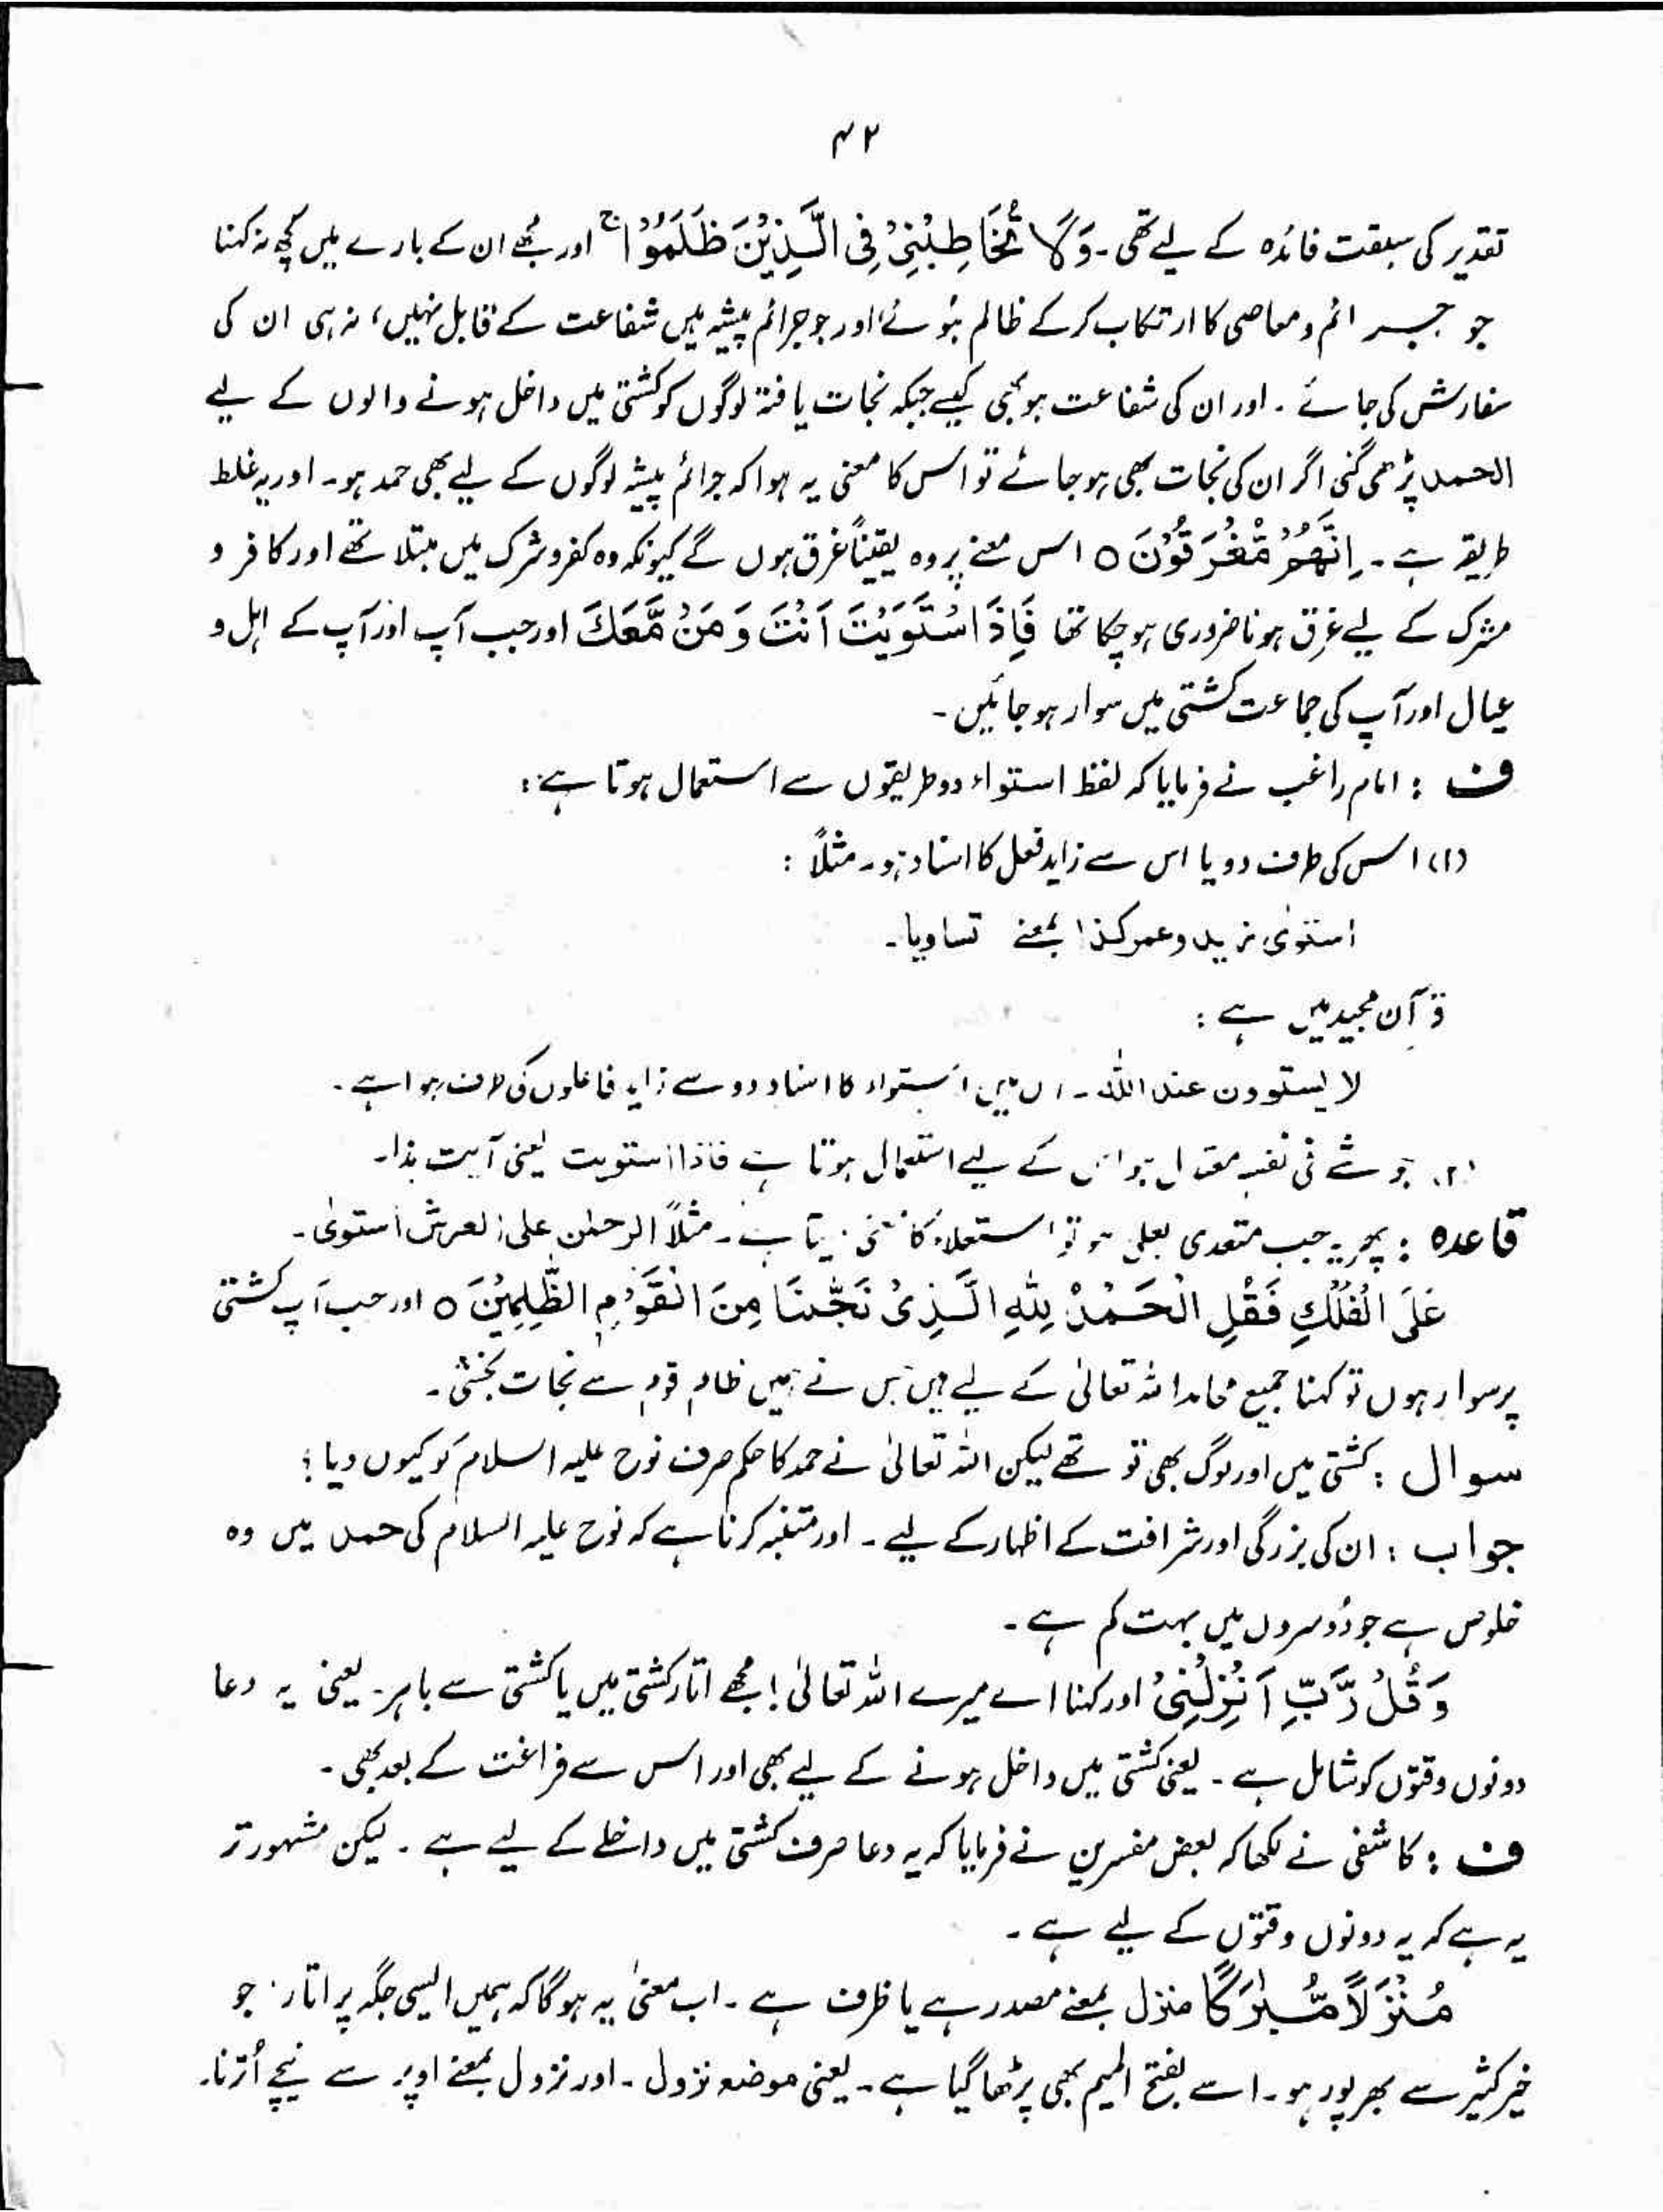 ۴۲
تقدیر کی سبقت فائدہ کے لیے تھی۔ وَلَا تُخَاطِبْنِیْ فِی الَّذِیْنَ ظَلَمُوْا ج اور مجھے ان کے بارے میں کچھ نہ کہنا
جو جرائم و معاصی کا ارتکاب کرکے ظالم ہُوئے اور جو جرائم پیشہ ہیں شفاعت کے قابل نہیں، نہ ہی ان کی
سفارش کی جائے۔ اور ان کی شفاعت ہو بھی کیسے جبکہ نجات یافتہ لوگوں کو کشتی میں داخل ہونے والوں کے لیے
الحمد پڑھی گئی اگر ان کی نجات بھی ہو جائے تو اس کا معنی یہ ہوا کہ جرائم پیشہ لوگوں کے لیے بھی حمد ہو۔ اور یہ غلط
طریقہ ہے۔ اِنَّھُمْ مُّغْرَقُوْنَ ۝ اس معنے پر وہ یقیناً غرق ہوں گے کیونکہ وہ کفر و شرک میں مبتلا تھے اور کافر و
مشرک کے لیے غرق ہونا ضروری ہو چکا تھا فَاِذَا اسْتَوَیْتَ اَنْتَ وَ مَنْ مَّعَكَ اور جب آپ اور آپ کے اہل و
عیال اور آپ کی جماعت کشتی میں سوار ہو جائیں۔
ف : امام راغب نے فرمایا کہ لفظ استواء دو طریقوں سے استعمال ہوتا ہے :
(۱) اس کی طرف دو یا اس سے زاید فعل کا اسناد ہو۔ مثلاً :
استوٰی زید وعمر کذا بمعنے تساویا۔
قرآن مجید میں ہے :
لا یستوون عند اللہ۔ اس میں استواء کا اسناد دو سے زاید فاعلوں کی طرف ہوا ہے۔
(۲) جو شے فی نفسہ معتدل ہو اس کے لیے استعمال ہوتا ہے فاذا استویت یعنی آیت ہذا۔
قاعدہ : پھر یہ جب متعدی بعلی ہو تو استعلاء کا معنی دیتا ہے۔ مثلاً الرحمٰن علی العرش استوٰی۔
عَلَی الْفُلْكِ فَقُلِ الْحَمْدُ لِلّٰهِ الَّذِیْ نَجّٰنَا مِنَ الْقَوْمِ الظّٰلِمِیْنَ ۝ اور جب آپ کشتی
پر سوار ہوں تو کہنا جمیع محامد اللہ تعالیٰ کے لیے ہیں جس نے ہمیں ظالم قوم سے نجات بخشی۔
سوال : کشتی میں اور لوگ بھی تو تھے لیکن اللہ تعالیٰ نے حمد کا حکم صرف نوح علیہ السلام کو کیوں دیا ؟
جواب : ان کی بزرگی اور شرافت کے اظہار کے لیے۔ اور متنبہ کرنا ہے کہ نوح علیہ السلام کی حمد میں وہ
خلوص ہے جو دُوسروں میں بہت کم ہے۔
وَقُلْ رَّبِّ اَنْزِلْنِیْ اور کہنا اے میرے اللہ تعالیٰ! مجھے اتار کشتی میں یا کشتی سے باہر۔ یعنی یہ دعا
دونوں وقتوں کو شامل ہے۔ یعنی کشتی میں داخل ہونے کے لیے بھی اور اس سے فراغت کے بعد بھی۔
ف : کاشفی نے لکھا کہ بعض مفسرین نے فرمایا کہ یہ دعا صرف کشتی میں داخلے کے لیے ہے۔ لیکن مشہور تر
یہ ہے کہ یہ دونوں وقتوں کے لیے ہے۔
مُنْزَلًا مُّبٰرَكًا منزل بمعنے مصدر ہے یا ظرف ہے۔ اب معنیٰ یہ ہوگا کہ ہمیں ایسی جگہ پر اتار جو
خیر کثیر سے بھرپور ہو۔ اسے بفتح المیم بھی پڑھا گیا ہے۔ یعنی موضع نزول۔ اور نزول بمعنے اوپر سے نیچے اُترنا۔